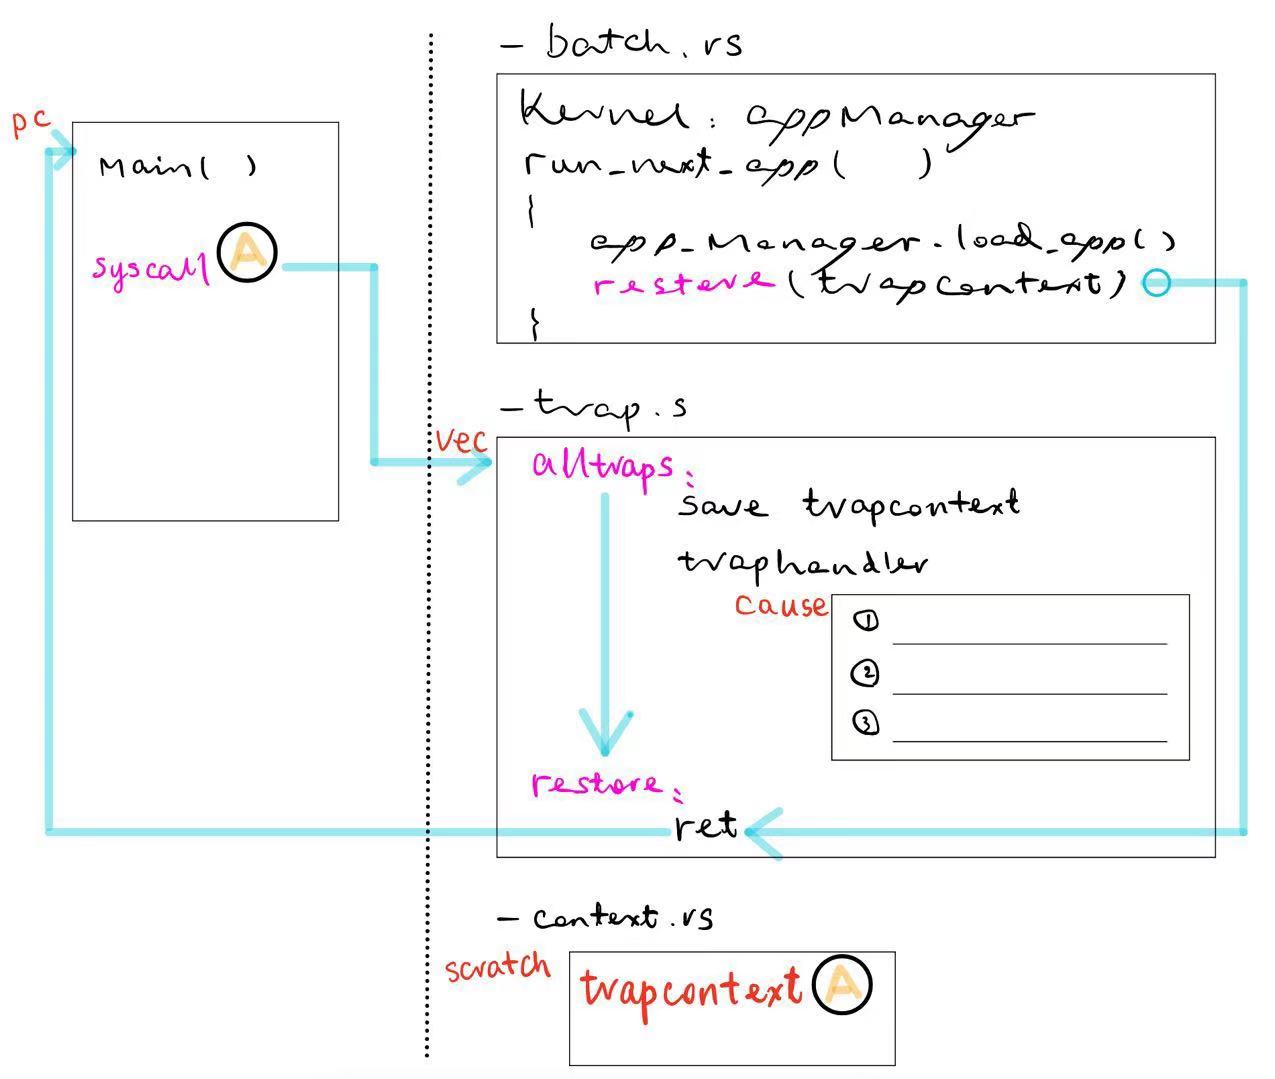 pc
Main( )
syscall A
- batch.rs
Kernel: appManager
run_next_app( )
{
app_Manager.load_app()
restore(trapcontext)
}
- trap.s
vec
alltraps:
save trapcontext
traphandler
cause
①
②
③
restore:
ret
- context.rs
scratch
trapcontext A